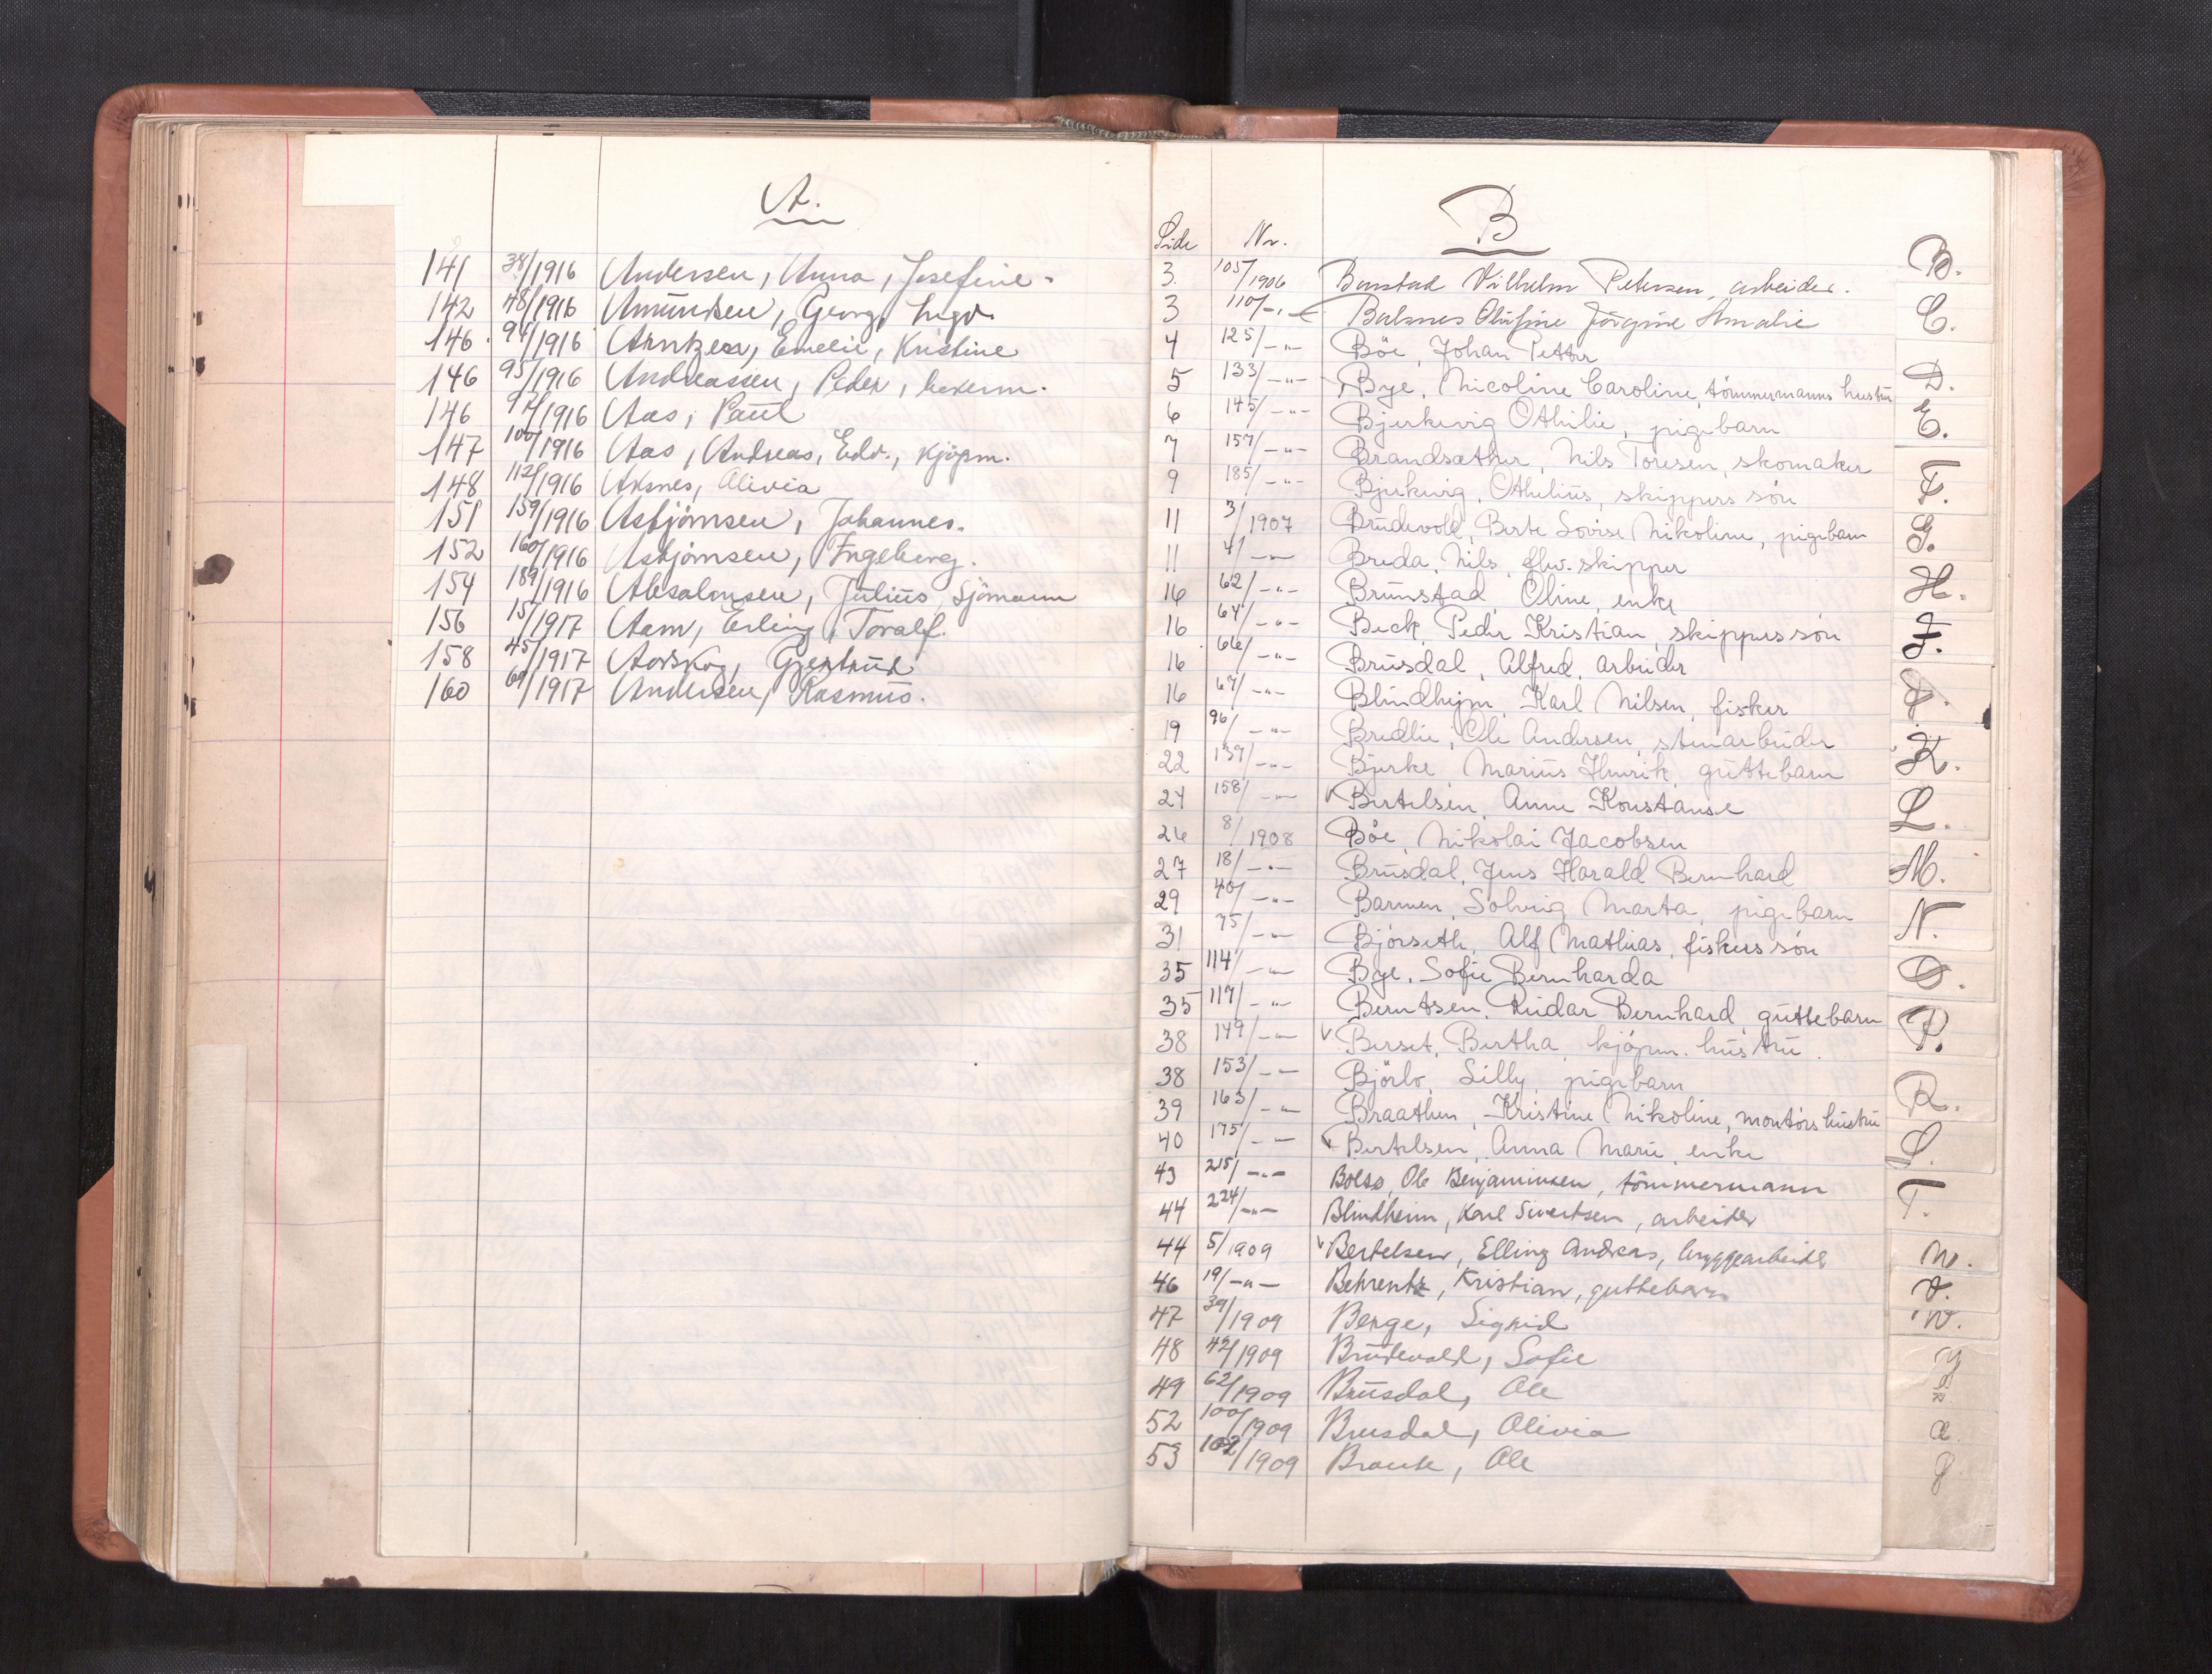 A.
141 38/1916 Andersen, Anna, Josefine.
142 48/1916 Amundsen, Georg, Ingv.
146 94/1916 Arntzen, Emelie, Kristine
146 95/1916 Andreassen, Peder,
146 97/1916 Aas, Paul
147 100/1916 Aas, Andreas, Edv., Kjöpm.
148 112/1916 Aksnes, Olivia
151 159/1916 Asbjörnsen, Johannes.
152 160/1916 Asbjörnsen, Ingeborg.
154 189/1916 Absalonsen, Julius, Sjömann
156 15/1917 Aam, Erling, Toralf.
158 45/1917 Aarskog, Gjertrud
160 69/1917 Andersen, Rasmus.
B
Side Nr.
3 105/1906 Banstad Vilhelm Petersen, arbeider.
3 110/-"- Balsnes Olufine Jörgine Amalie
4 125/-"- Böe, Johan Petter
5 133/-"- Bye, Nicoline Caroline, tömmermanns hustru
6 145/-"- Bjerkevig Othilie, pigebarn
7 157/-"- Brandsæther, Nils Toresen, skomaker
9 185/-"- Bjerkevig, Othelius, skippers sön
11 3/1907 Brudevold, Berte Lovise Nikoline, pigebarn
11 4/-"- Breda, Nils, fhv. skipper
16 62/-"- Brunstad, Oline, enke
16 64/-"- Beck, Peder Kristian, skippers sön
16 66/-"- Brusdal, Alfred, arbeider
16 67/-"- Blindhejm, Karl Nilsen, fisker
19 96/-"- Bredlie, Ole Andersen, stenarbeider
22 137/-"- Bjerke, Marius Henrik, guttebarn
24 158/-"- Bertelsen, Anne Konstanse
26 8/1908 Böe, Nikolai Jacobsen
27 18/-"- Brusdal, Jens Harald Bernhard
29 40/-"- Barmen, Solveig Marta, pigebarn
31 75/-"- Björseth, Alf Mathias, fiskers sön
35 114/-"- Bye, Sofie Bernharda
35 117/-"- Berntsen, Reidar Bernhard, guttebarn
38 149/-"- Berset, Bertha, kjöpm. hustru.
38 153/-"- Björlo, Lilly, pigebarn
39 163/-"- Braathen, Kristine Nikoline, montörs hustru
40 175/-"- Bertelsen, Anna Marie, enke
43 215/-"- Bolsö, Ole Benjaminsen, tömmermann
44 224/-"- Blindheim, Karl Sivertsen, arbeider
44 5/1909 Bertelsen, Elling Andreas, bryggearbeider
46 19/-"- Behrentz, Kristian, guttebarn
47 39/1909 Berge, Sigrid
48 42/1909 Brudevold, Sofie
49 62/1909 Brusdal, Ole
52 100/1909 Brusdal, Olivia
53 102/1909 Ole
B.
C.
D.
E.
F.
G.
H.
I.
J.
K.
L.
M.
N.
O.
P.
R.
S.
T.
U.
V.
W.
Y
Z
Æ
Ø